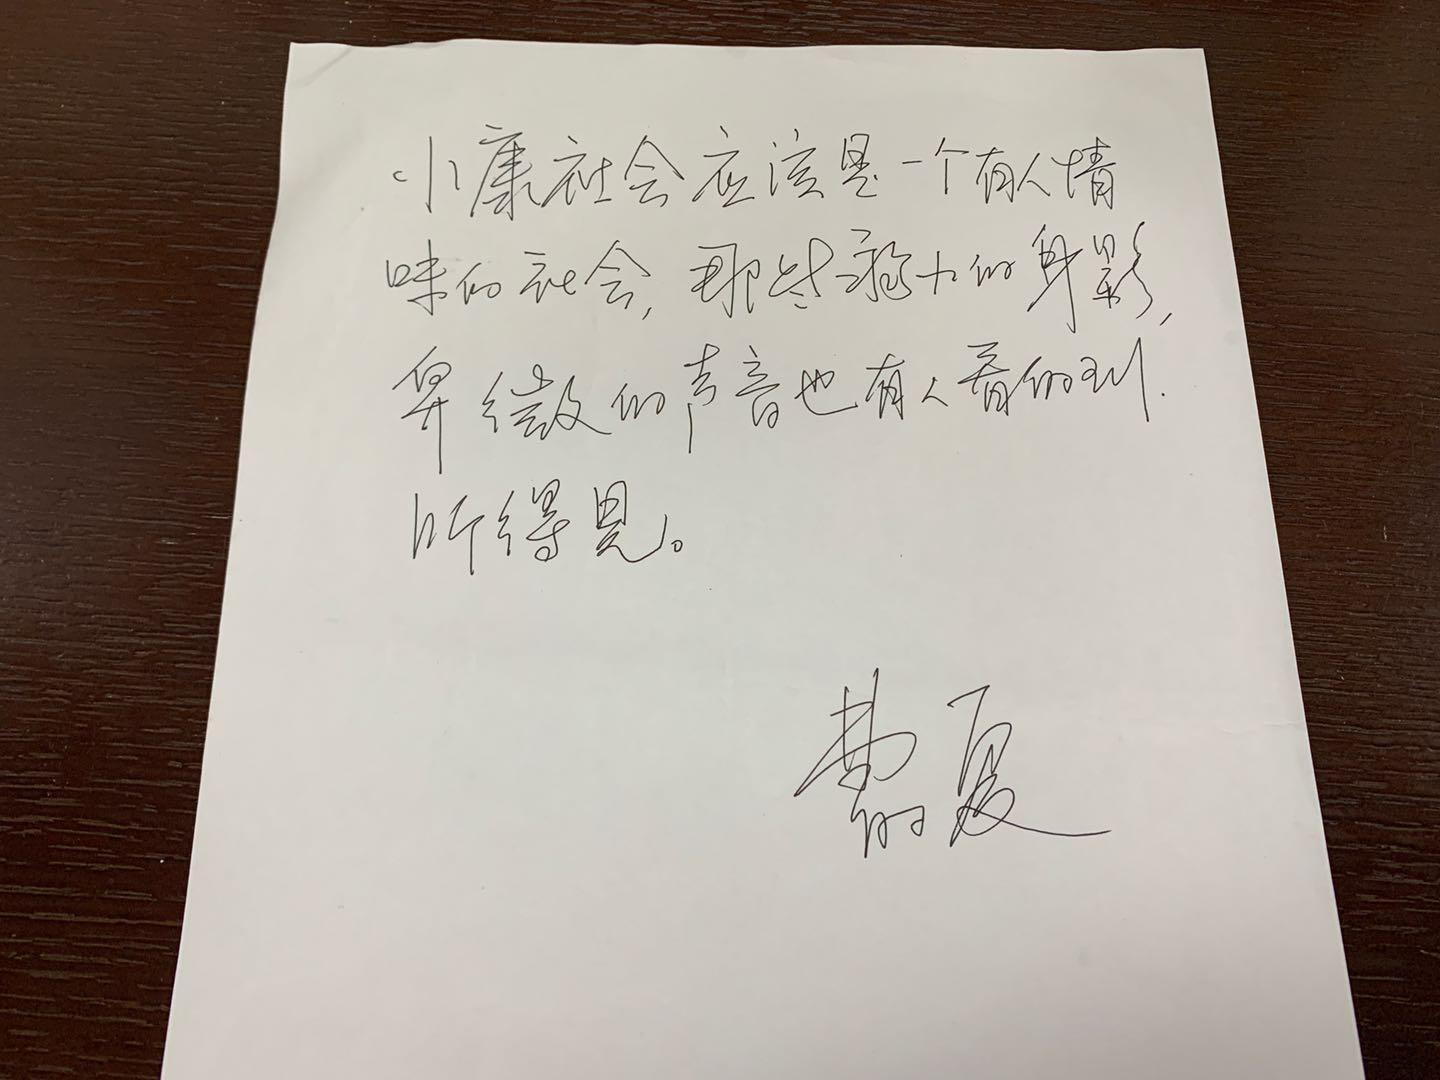 小康社会应该是一个有人情
味的社会,那些弱小的身影,
卑微的声音也有人看的到.
听得见。
费夏